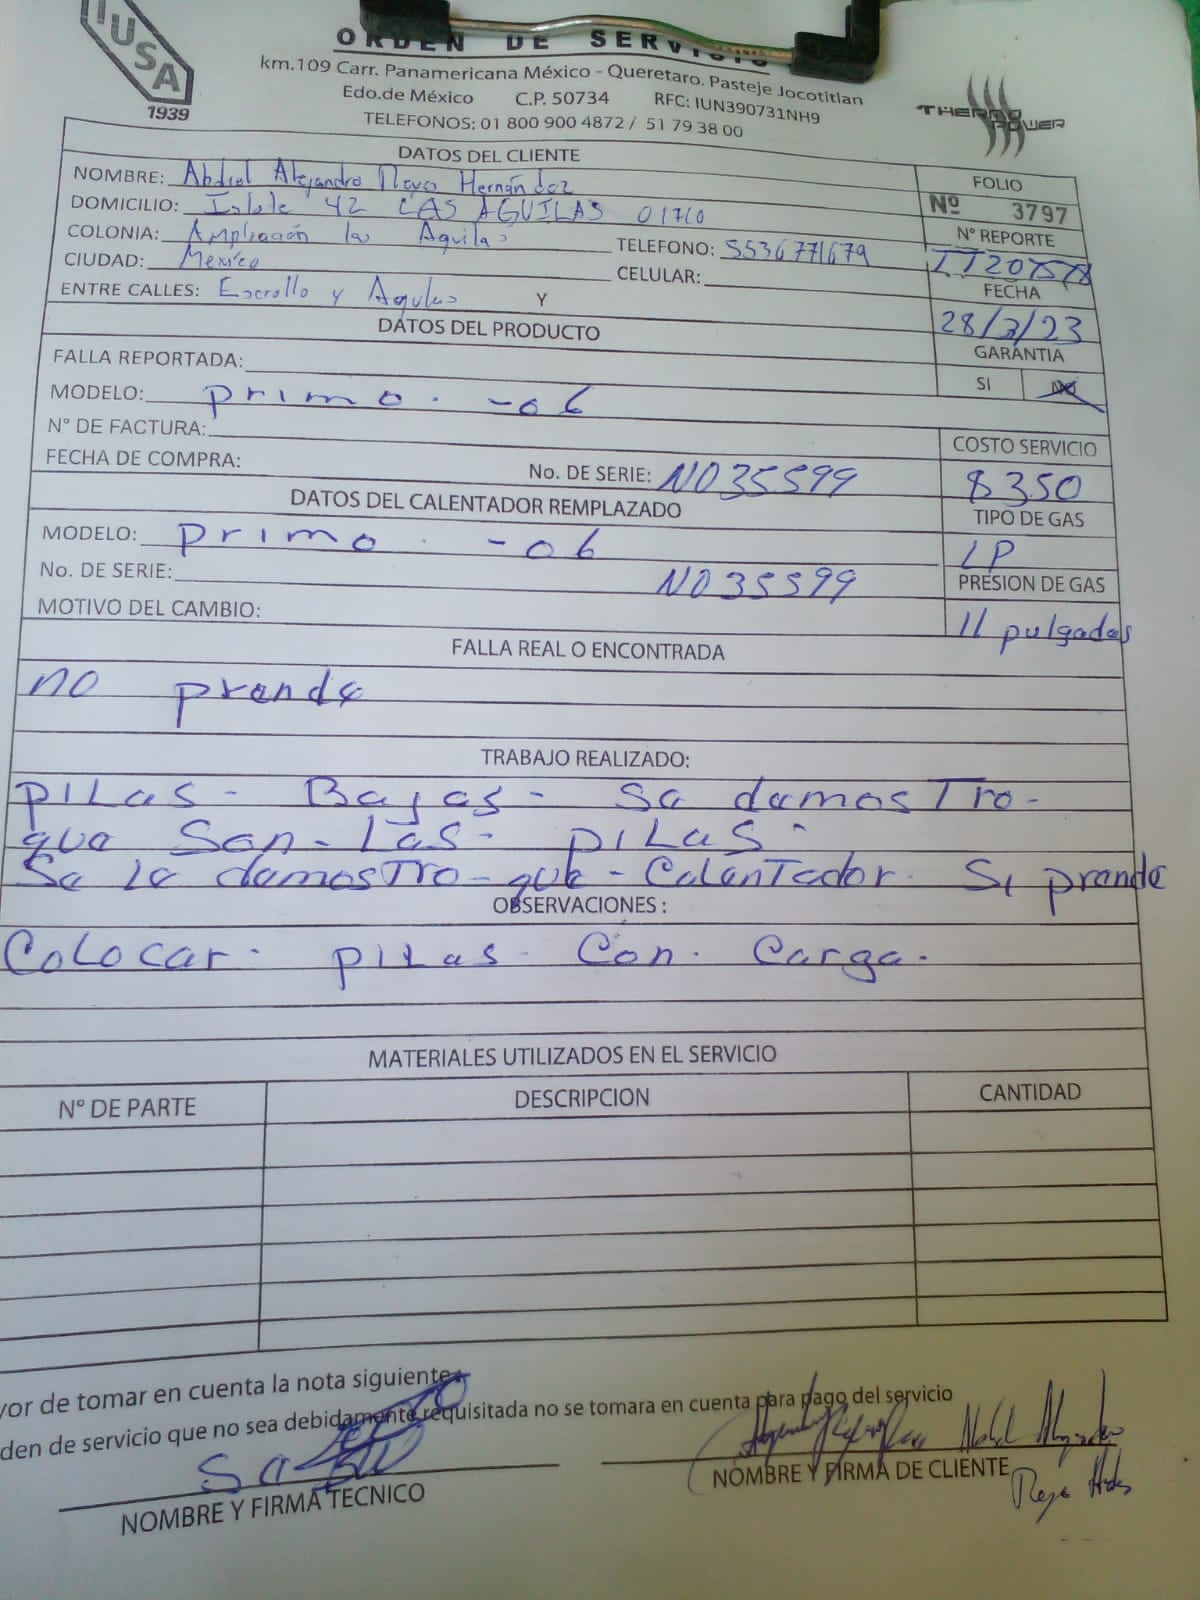 IUSA
1939
ORDEN DE SERVICIO
km.109 Carr. Panamericana México - Queretaro. Pasteje Jocotitlan
Edo.de México C.P. 50734 RFC: IUN390731NH9
TELEFONOS: 01 800 900 4872 / 51 79 38 00
THERMO POWER
DATOS DEL CLIENTE
NOMBRE: Abdiel Alejandro Hernández
FOLIO
Nº 3797
DOMICILIO: Islote 42 LAS AGUILAS 01710
COLONIA: Ampliación las Aguilas
TELEFONO: 5536771679
Nº REPORTE
CIUDAD: Mexico
CELULAR:
FECHA
28/3/23
ENTRE CALLES: y Aguilas Y
DATOS DEL PRODUCTO
GARANTIA
SI NO
FALLA REPORTADA:
MODELO: primo. -06
N° DE FACTURA:
COSTO SERVICIO
$350
FECHA DE COMPRA:
No. DE SERIE: N035599
DATOS DEL CALENTADOR REMPLAZADO
TIPO DE GAS
LP
MODELO: primo. -06
PRESION DE GAS
11 pulgadas
No. DE SERIE: N035599
MOTIVO DEL CAMBIO:
FALLA REAL O ENCONTRADA
no prende
TRABAJO REALIZADO:
PILas - Bajas - se demosTro -
que Son - Las - PILas -
Se le demosTro - que - CalenTador. Si prende
OBSERVACIONES:
COLOCar. pILas Con. Carga.
MATERIALES UTILIZADOS EN EL SERVICIO
N° DE PARTE DESCRIPCION CANTIDAD
vor de tomar en cuenta la nota siguiente
den de servicio que no sea debidamente requisitada no se tomara en cuenta para pago del servicio
NOMBRE Y FIRMA TECNICO
NOMBRE Y FIRMA DE CLIENTE